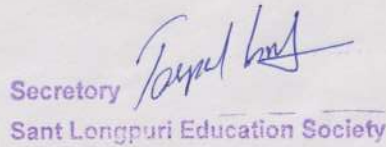 Secretory
Sant Longpuri Education Society